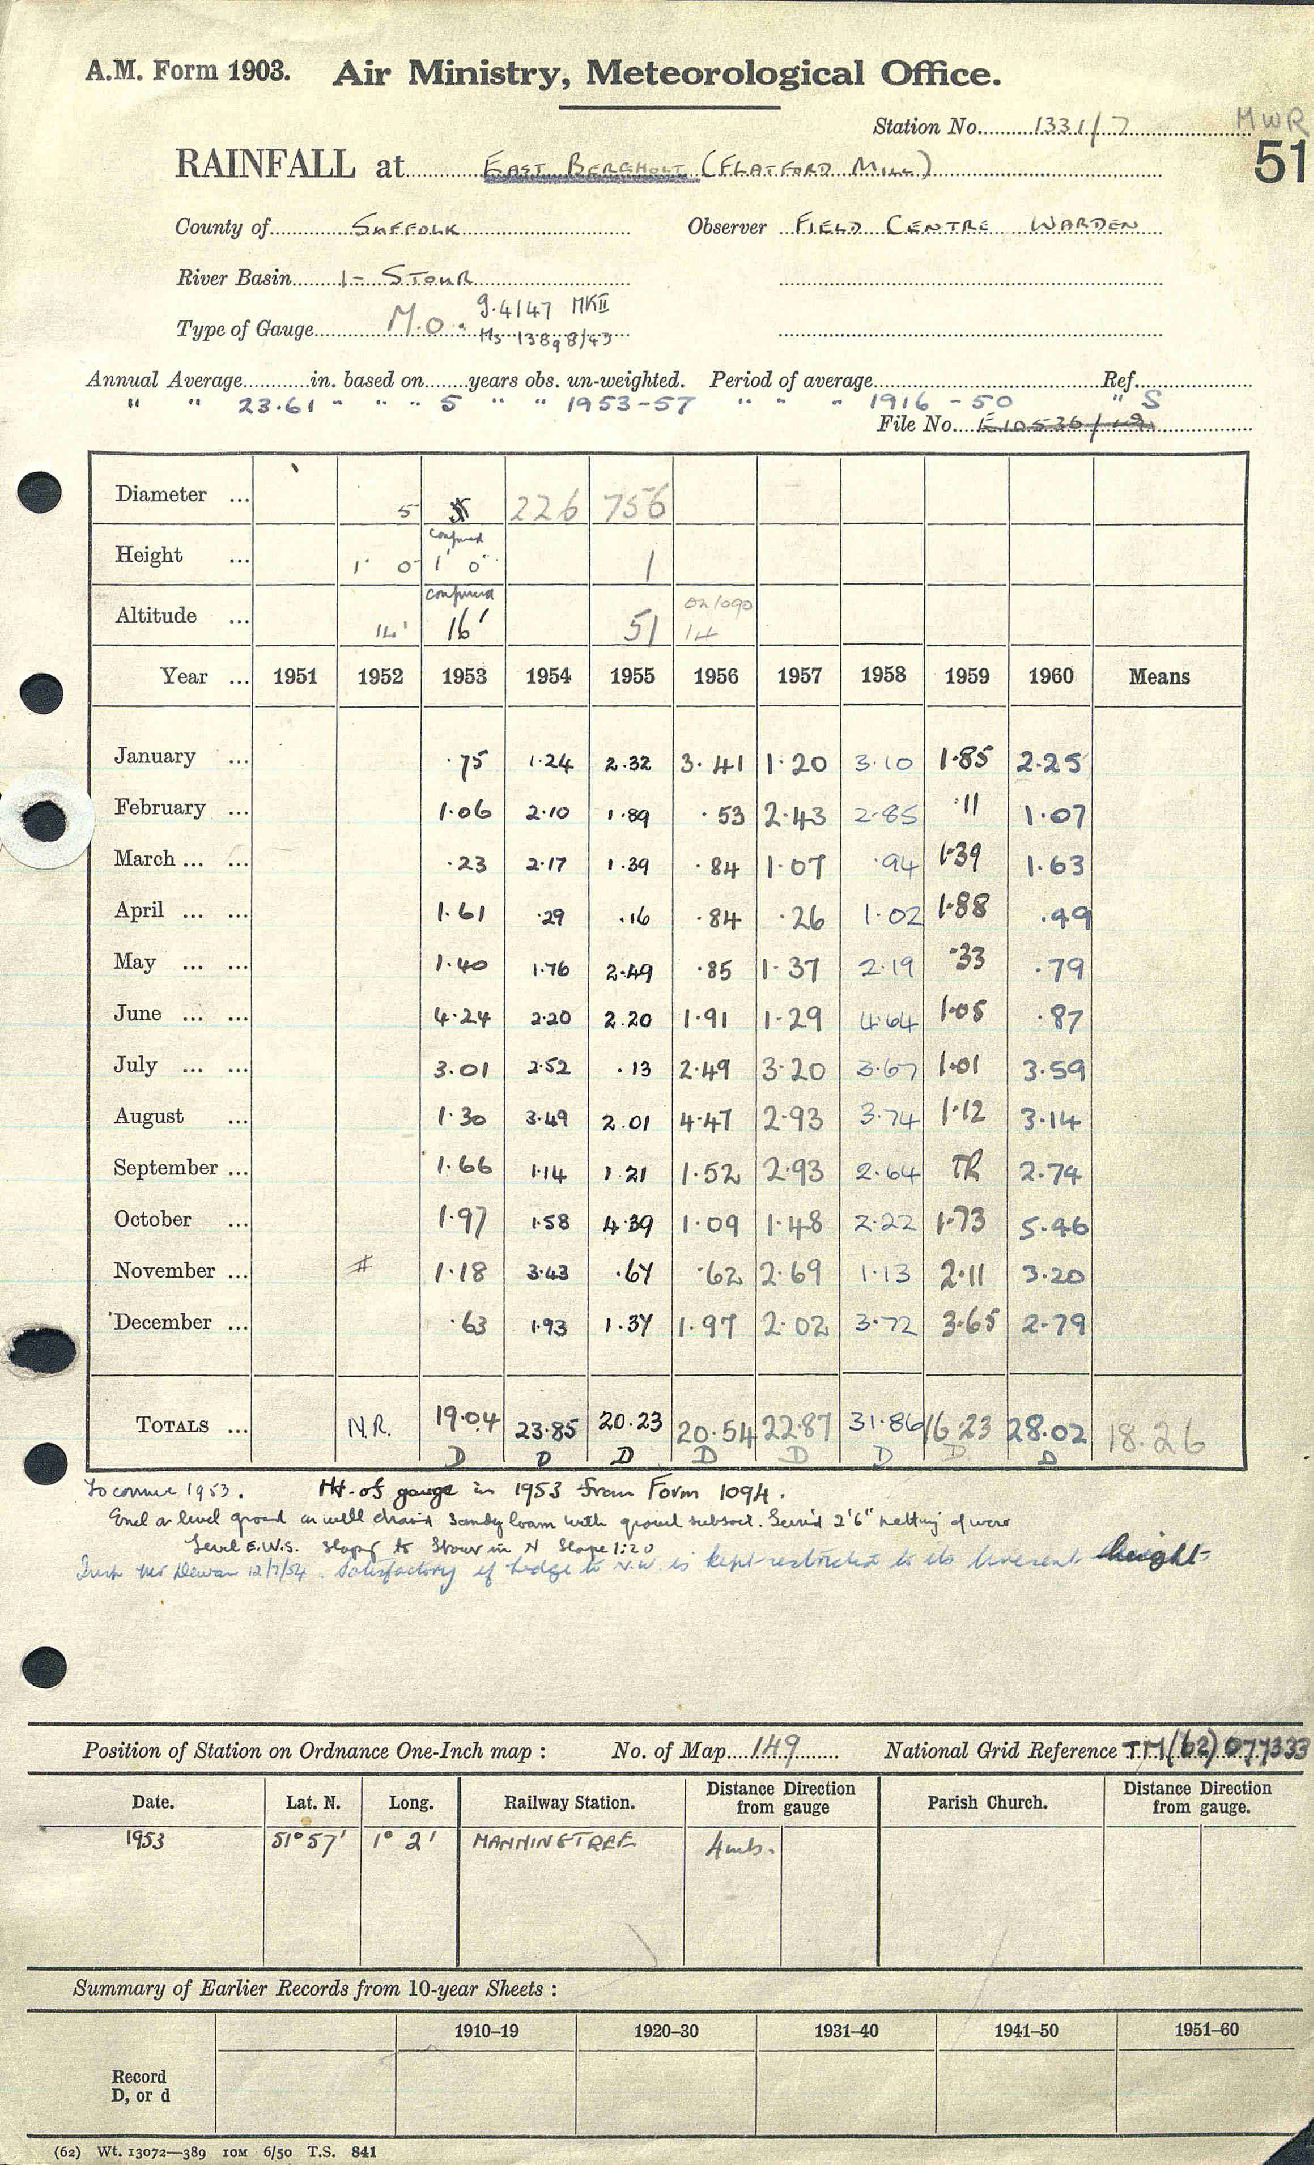 A.M. Form 1903. Air Ministry, Meteorological Office.
Station No. 1331/7 MWR
51
RAINFALL at EAST BERGHOLT (FLATFORD MILL)
County of SUFFOLK Observer FIELD CENTRE WARDEN
River Basin 1- STOUR
Type of Gauge M.O. 9.4/47 MKII
Annual Average in. based on years obs. un-weighted. Period of average Ref.
" " 23.61 " " " 5 " " 1953-57 " " " 1916-50 " S
File No.
Diameter ... 5 5 226 756
Height ... 1' 0" confirmed 1' 0" 1
Altitude ... 14' confirmed 16' 51 14
Year ... 1951 1952 1953 1954 1955 1956 1957 1958 1959 1960 Means
January ... .75 1.24 2.32 3.41 1.20 3.10 1.85 2.25
February ... 1.06 2.10 1.89 .53 2.43 2.85 .11 1.07
March ... ... .23 2.17 1.39 .84 1.07 .94 1.39 1.63
April ... ... 1.61 .29 .16 .84 .26 1.02 1.88 .49
May ... ... 1.40 1.76 2.49 .85 1.37 2.19 .33 .79
June ... ... 4.24 2.20 2.20 1.91 1.29 4.64 1.05 .87
July ... ... 3.01 2.52 .13 2.49 3.20 3.67 1.01 3.59
August ... 1.30 3.49 2.01 4.47 2.93 3.74 1.12 3.14
September ... 1.66 1.14 1.21 1.52 2.93 2.64 TR 2.74
October ... 1.97 1.58 4.39 1.09 1.48 2.22 1.73 5.46
November ... # 1.18 3.43 .67 .62 2.69 1.13 2.11 3.20
December ... .63 1.93 1.37 1.97 2.02 3.72 3.65 2.79
TOTALS ... N.R. 19.04 23.85 20.23 20.54 22.87 31.86 16.23 28.02 18.26
D D D D D D D D
To comme 1953. Ht. of gauge in 1953 from Form 1094.
level ground sandy loam with gravel subsoil. 2'6" netting
Level E.W.S. slopes to Stour in N Slope 1:20
12/7/54. Satisfactory if hedge to N.W. is kept restricted to its present height
Position of Station on Ordnance One-Inch map : No. of Map 149 National Grid Reference TM(62)077333
Date. Lat. N. Long. Railway Station. Distance Direction from gauge Parish Church. Distance Direction from gauge.
1953 51° 57' 1° 2' MANNINGTREE
Summary of Earlier Records from 10-year Sheets :
1910–19 1920–30 1931–40 1941–50 1951–60
Record
D, or d
(62) Wt. 13072—389 10M 6/50 T.S. 841